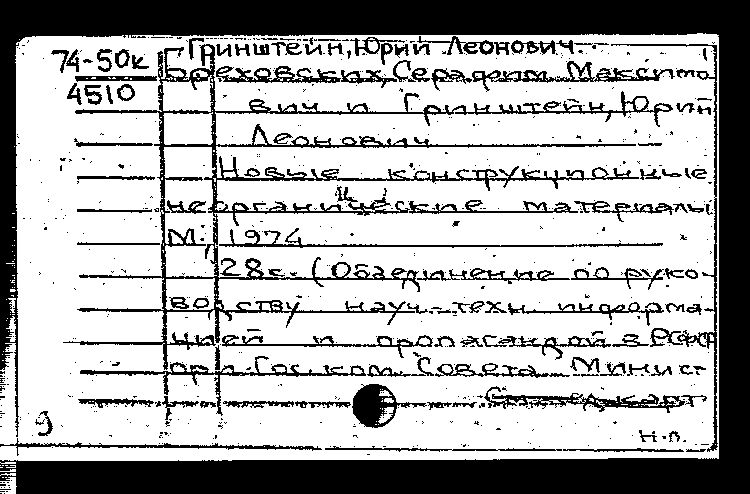 Гринштейн, Юрий Леонович.
74-50к Бреховских, Серафим Максимо
4510 вич и Гринштейн, Юрий
Леонович
Новые конструкционные
неорганические материалы
М., 1974
28с. (Объединение по руко-
водству науч.-техн. информа-
цией и пропагандой в РСФСР
при Гос. ком. Совета Минист
См. след. карт.
9
н.п.